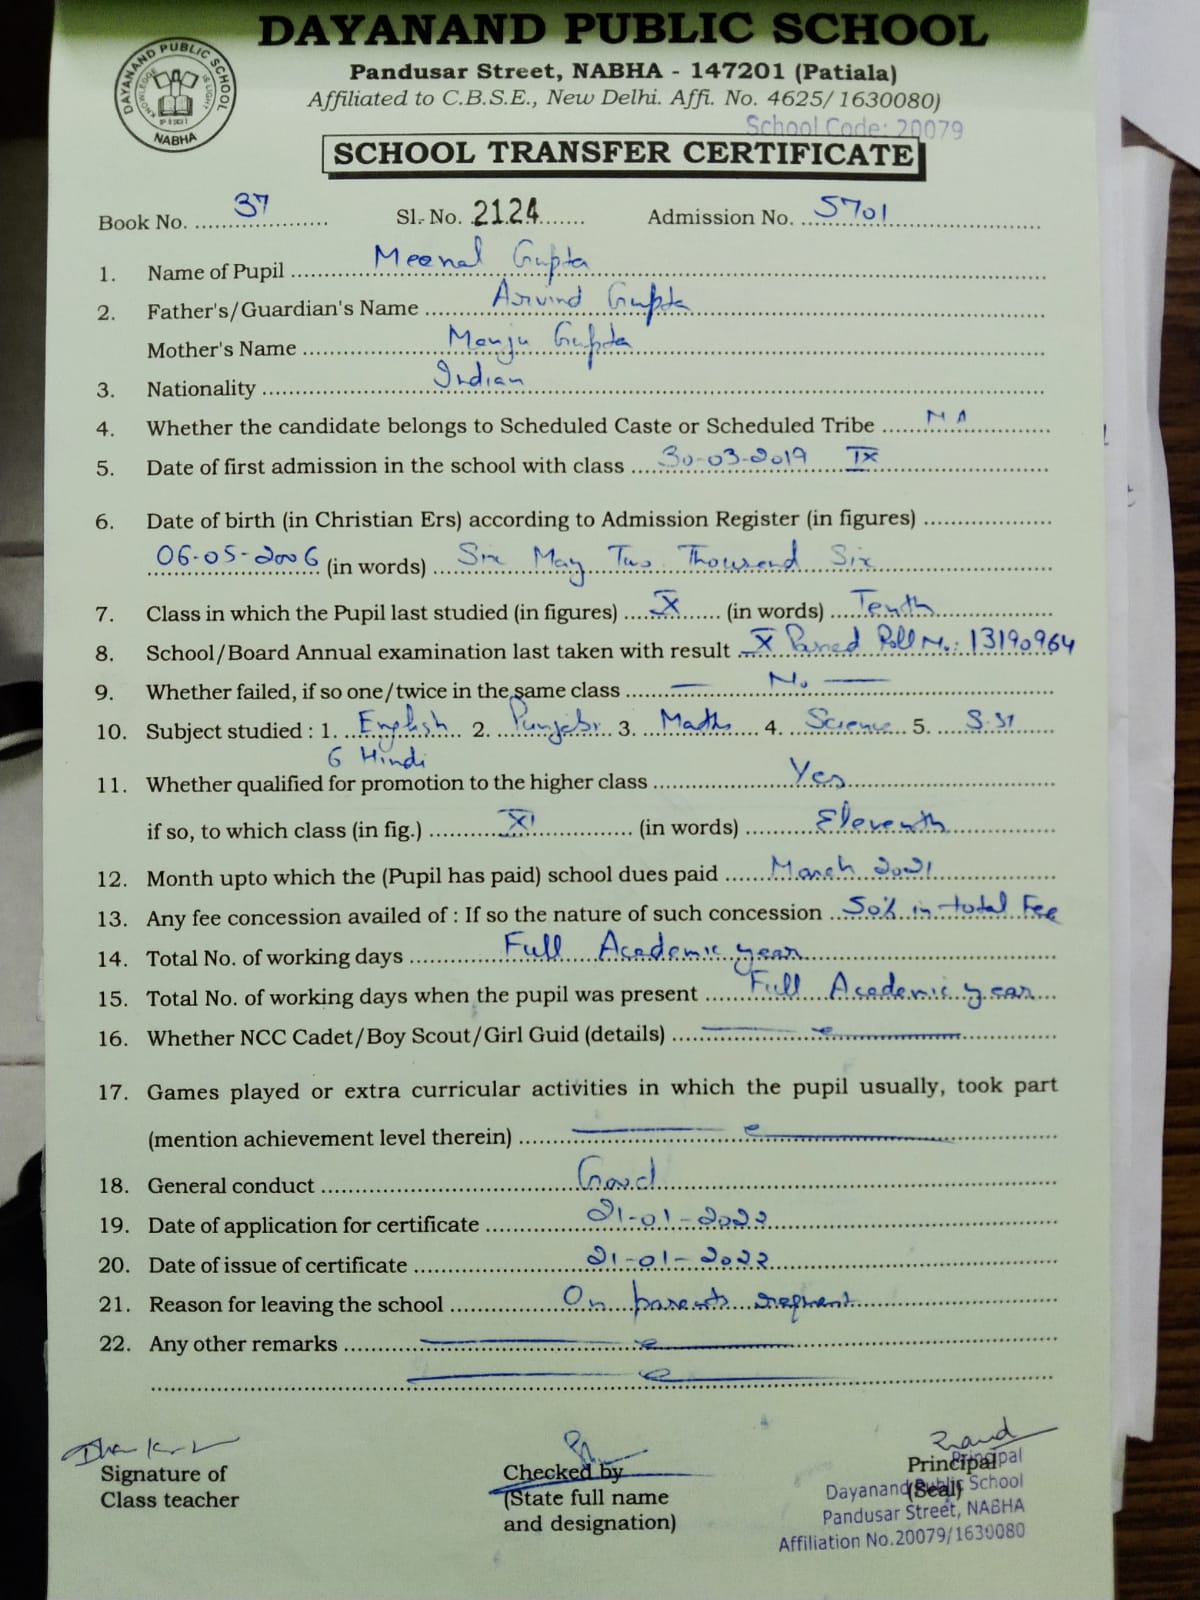 DAYANAND PUBLIC SCHOOL
Pandusar Street, NABHA - 147201 (Patiala)
Affiliated to C.B.S.E., New Delhi. Affi. No. 4625/ 1630080)
School Code: 20079
DAYANAND PUBLIC SCHOOL
KNOWLEDGE IS LIGHT
NABHA
SCHOOL TRANSFER CERTIFICATE
Book No. 37 Sl. No. 2124 Admission No. 5701
1. Name of Pupil Meenal Gupta
2. Father's/Guardian's Name Arvind Gupta
Mother's Name Manju Gupta
3. Nationality Indian
4. Whether the candidate belongs to Scheduled Caste or Scheduled Tribe NA
5. Date of first admission in the school with class 30-03-2019 IX
6. Date of birth (in Christian Ers) according to Admission Register (in figures)
06-05-2006 (in words) Six May Two Thousand Six
7. Class in which the Pupil last studied (in figures) X (in words) Tenth
8. School/Board Annual examination last taken with result X Passed Roll No.: 13190964
9. Whether failed, if so one/twice in the same class — No —
10. Subject studied : 1. English 2. Punjabi 3. Maths 4. Science 5. S.St
6 Hindi
11. Whether qualified for promotion to the higher class Yes
if so, to which class (in fig.) XI (in words) Eleventh
12. Month upto which the (Pupil has paid) school dues paid March 2021
13. Any fee concession availed of : If so the nature of such concession 50% in total Fee
14. Total No. of working days Full Academic year
15. Total No. of working days when the pupil was present Full Academic year
16. Whether NCC Cadet/Boy Scout/Girl Guid (details)
17. Games played or extra curricular activities in which the pupil usually, took part
(mention achievement level therein)
18. General conduct Good
19. Date of application for certificate 21-01-2022
20. Date of issue of certificate 21-01-2022
21. Reason for leaving the school On parents request
22. Any other remarks
Signature of
Class teacher
Checked by
(State full name
and designation)
Principal
(Seal)
Principal
Dayanand Public School
Pandusar Street, NABHA
Affiliation No.20079/1630080